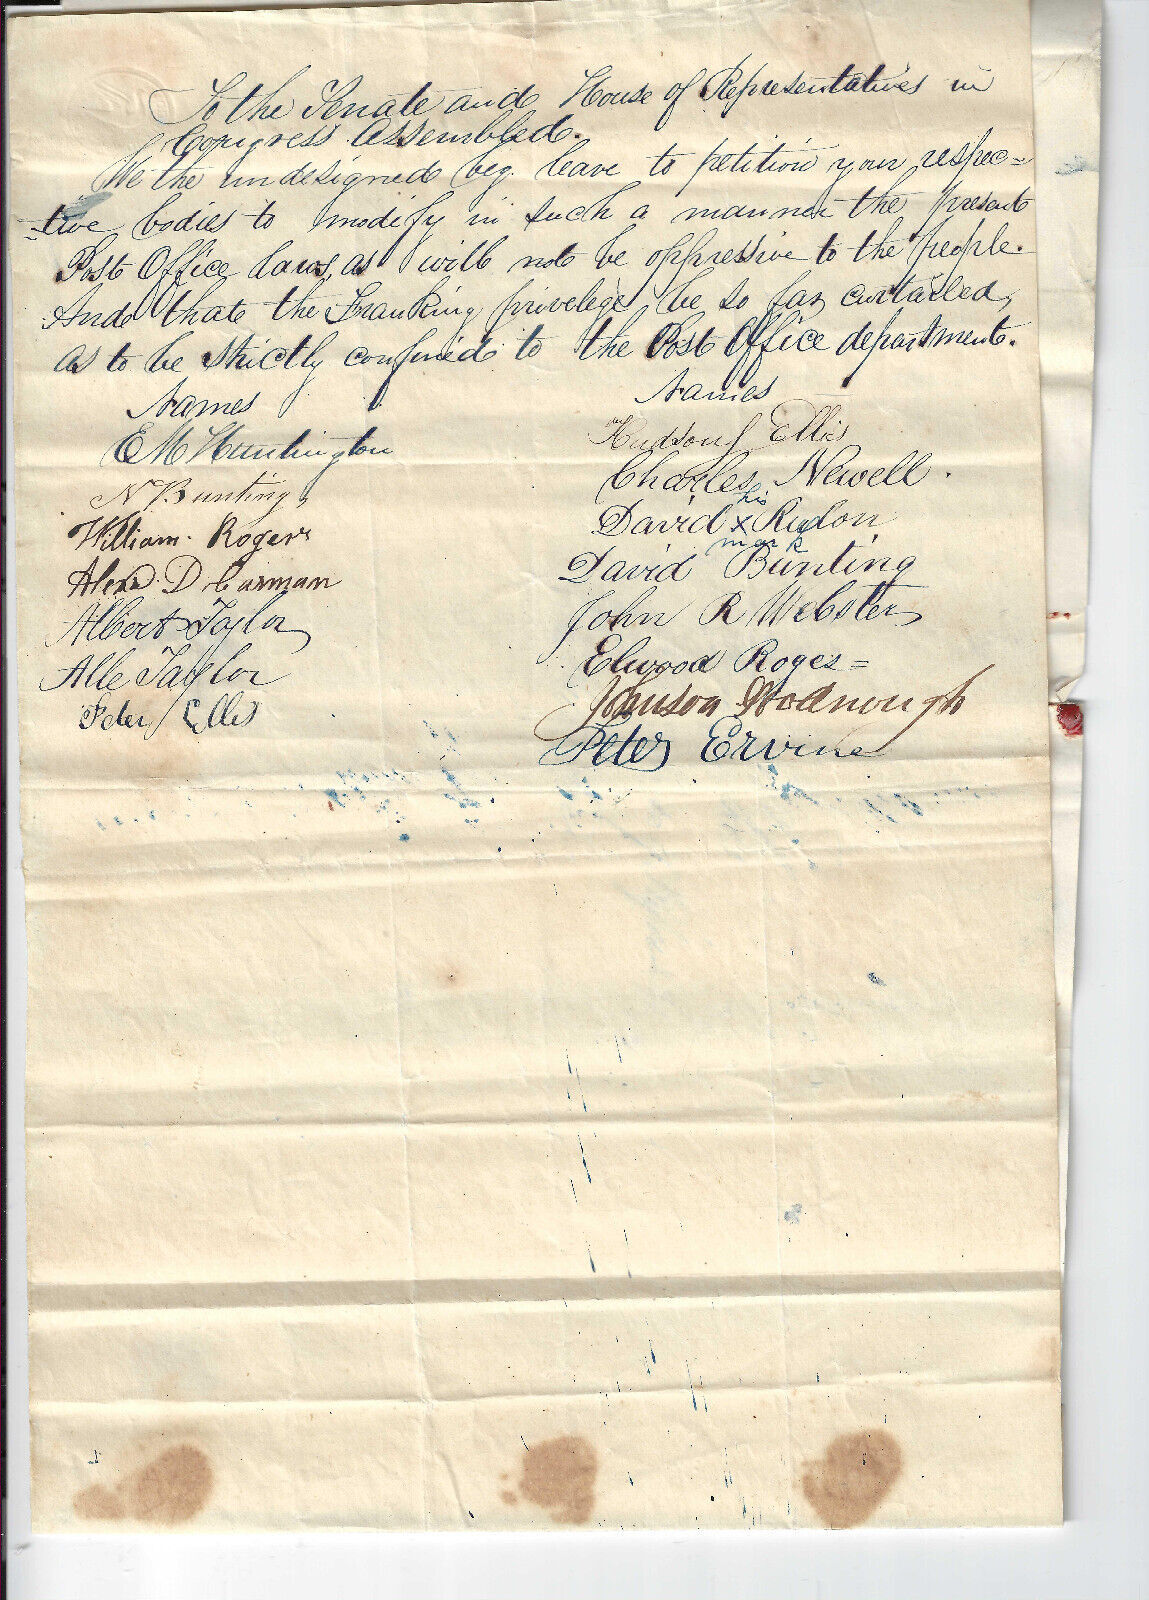 To the Senate and House of Representatives in
Congress Assembled.
We the undesigned beg leave to petition your respec=
=tive bodies to modify in such a manner the present
Post Office laws, as will not be oppressive to the people.
And that the Franking privelege, be so far curtailed,
as to be strictly confined to the Post Office department.
Names
E M Huntington
N Bunting
William. Rogers
Alexr. D Carman
Albert Taylor
Alle Taylor
Peter Ellis
Names
Hudson Ellis
Charles Newell.
his
David x Rudon
mark
David Bunting
John R Webster
Elwood Roges=
Johnson Wodnough
Peter Ervine